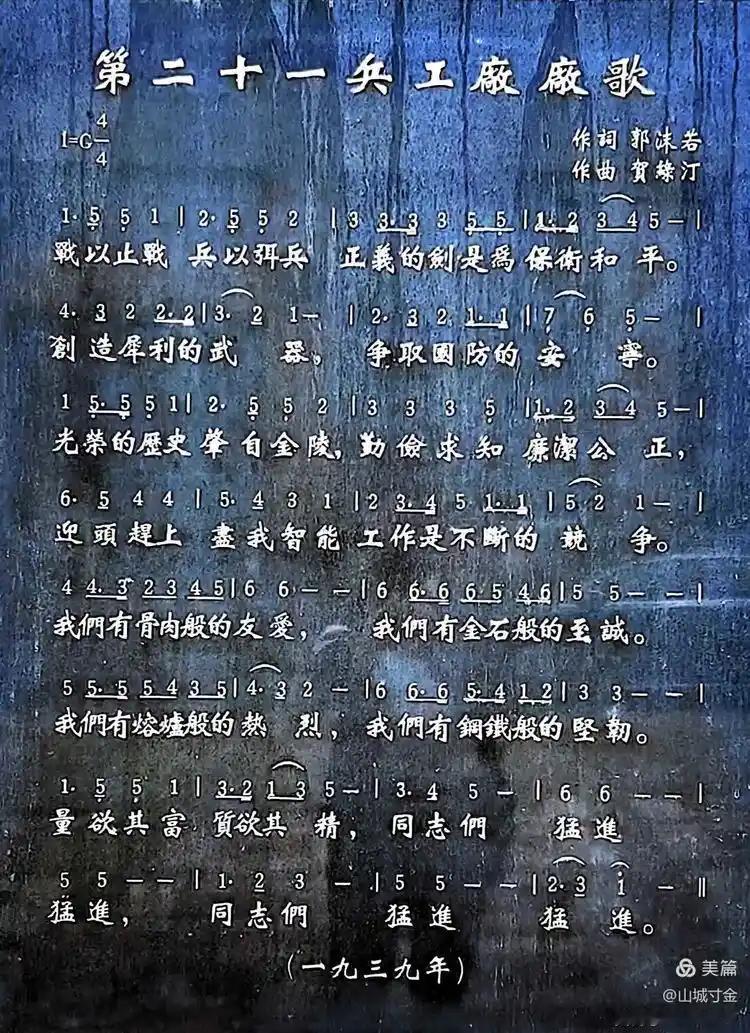 第二十一兵工廠廠歌
1=G 4/4
作詞 郭沫若
作曲 賀綠汀
1· 5 5 1 | 2· 5 5 2 | 3 3· 3 3 5 5 | 1· 2 3 4 5 — |
戰以止戰 兵以弭兵 正義的劍是為保衛和平。
4· 3 2 2· 2 | 3· 2 1 — | 2· 3 2 1· 1 | 7 6 5 — |
創造犀利的武器，爭取國防的安寧。
1 5· 5 5 1 | 2· 5 5 2 | 3 3 3 5 | 1· 2 3 4 5 — |
光榮的歷史肇自金陵，勤儉求知 廉潔公正，
6· 5 4 4 | 5· 4 3 1 | 2 3· 4 5 1· 1 | 5 2 1 — |
迎頭趕上 盡我智能 工作是不斷的競爭。
4 4· 3 2 3 4 5 | 6 6 — — | 6 6· 6 6 5 4 6 | 5 5 — — |
我們有骨肉般的友愛，我們有金石般的至誠。
5 5· 5 5 4 3 5 | 4· 3 2 — | 6 6· 6 5· 4 1 2 | 3 3 — — |
我們有熔爐般的熱烈，我們有鋼鐵般的堅韌。
1· 5 5 1 | 3· 2 1 3 5 — | 3· 4 5 — | 6 6 — — |
量欲其富 質欲其精，同志們 猛進
5 5 — — | 1· 2 3 — | 5 5 — — | 2· 3 1 — ‖
猛進，同志們 猛進 猛進。
(一九三九年)
美篇
@山城寸金